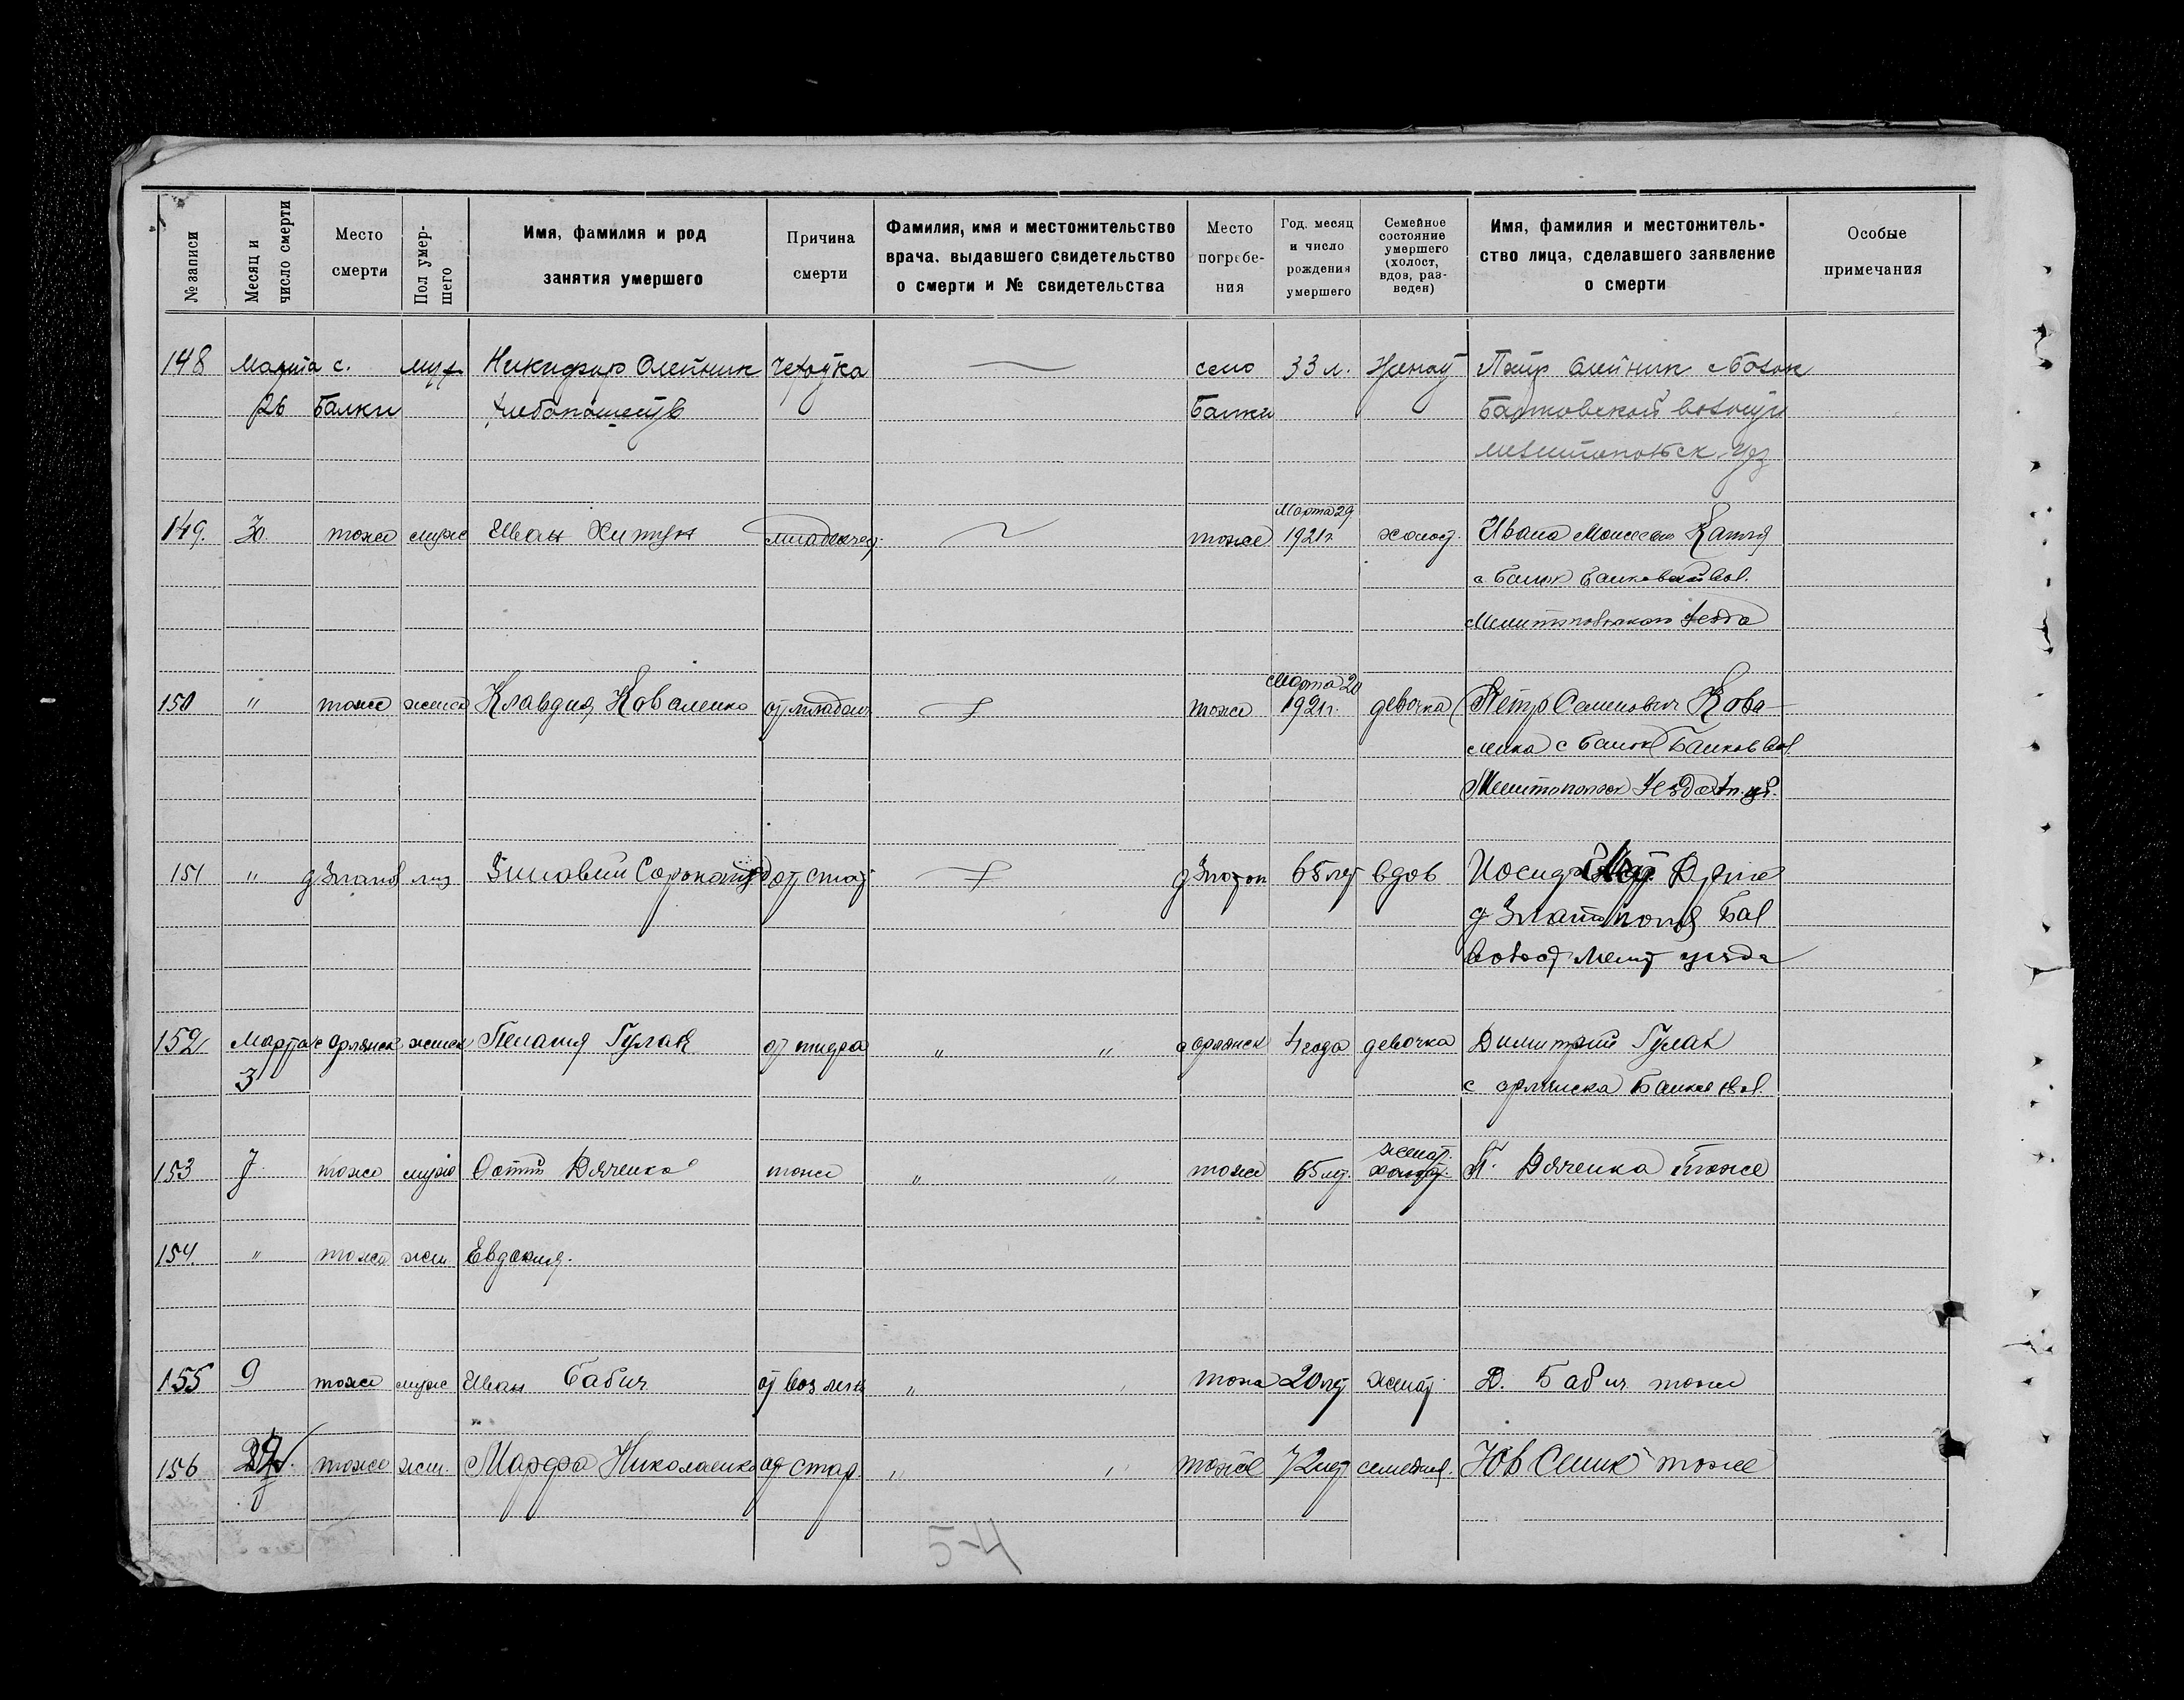 № записи
Месяц и число смерти
Место смерти
Пол умершего
Имя, фамилия и род занятия умершего
Причина смерти
Фамилия, имя и местожительство врача. выдавшего свидетельство о смерти и № свидетельства
Место погребения
Год, месяц и число рождения умершего
Семейное состояние умершего (холост, вдов, разведен)
Имя, фамилия и местожительство лица, сделавшего заявление о смерти
Особые примечания
148 Марта с. муж Никифир Олейник Чехотка село 33 л. Женат Олейник с Балок
26 Балки Хлебопашеств Балки Балковской волости
Мелитопольск. уез
Марта 29
149. 30. тоже муж Иван Хитун младенчес. тоже 1921 г. холост. Ивана Моисеева
с Балок Балковской вол.
Мелитопольского уезда
Марта 20
150 " тоже женск Клавдия Коваленко от младен тоже 1921 г. девочка Петр Семенович Кова-
ленка с Балок Балков вол.
Мелитопольск уезда
151 " д Златоп муз Зиновий от стар д Златоп 65 лет вдов Иосиф
д Златополя Бал
волост Мелит уезда
152 Марта с Орлянск женск Пелагия Гулак от тифа " " с орлянск 4 года девочка Димитрий Гулак
3 с орлянска Балков вол.
женат.
153 7 тоже мужс Остап Дяченко тоже " " тоже 65 лет. холост. П. Дяченка тоже
154. " тоже жен Евдокия.
155 9 тоже мужс Иван Бабич от воз легк " " тоже 20 лет женат Д. Бабич тоже
156 тоже жен. Марфа Николаенко от стар. " " тоже 72 лет семейная. тоже
54